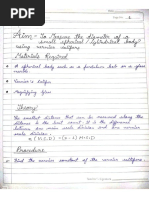 Aim - To Measure the diameter of a
small spherical / cylindrical body
using vernier callipers
Materials Required
A spherical body such as a pendulum bob or a glass
marble.
Vernier's callipers
Magnifying glass
Theory
The smallest distance that can be measured along the
distance is the least count. It is the difference
between one main scale division and one vernier
scale division.
Procedure
Find the vernier constant of the vernier callipers.